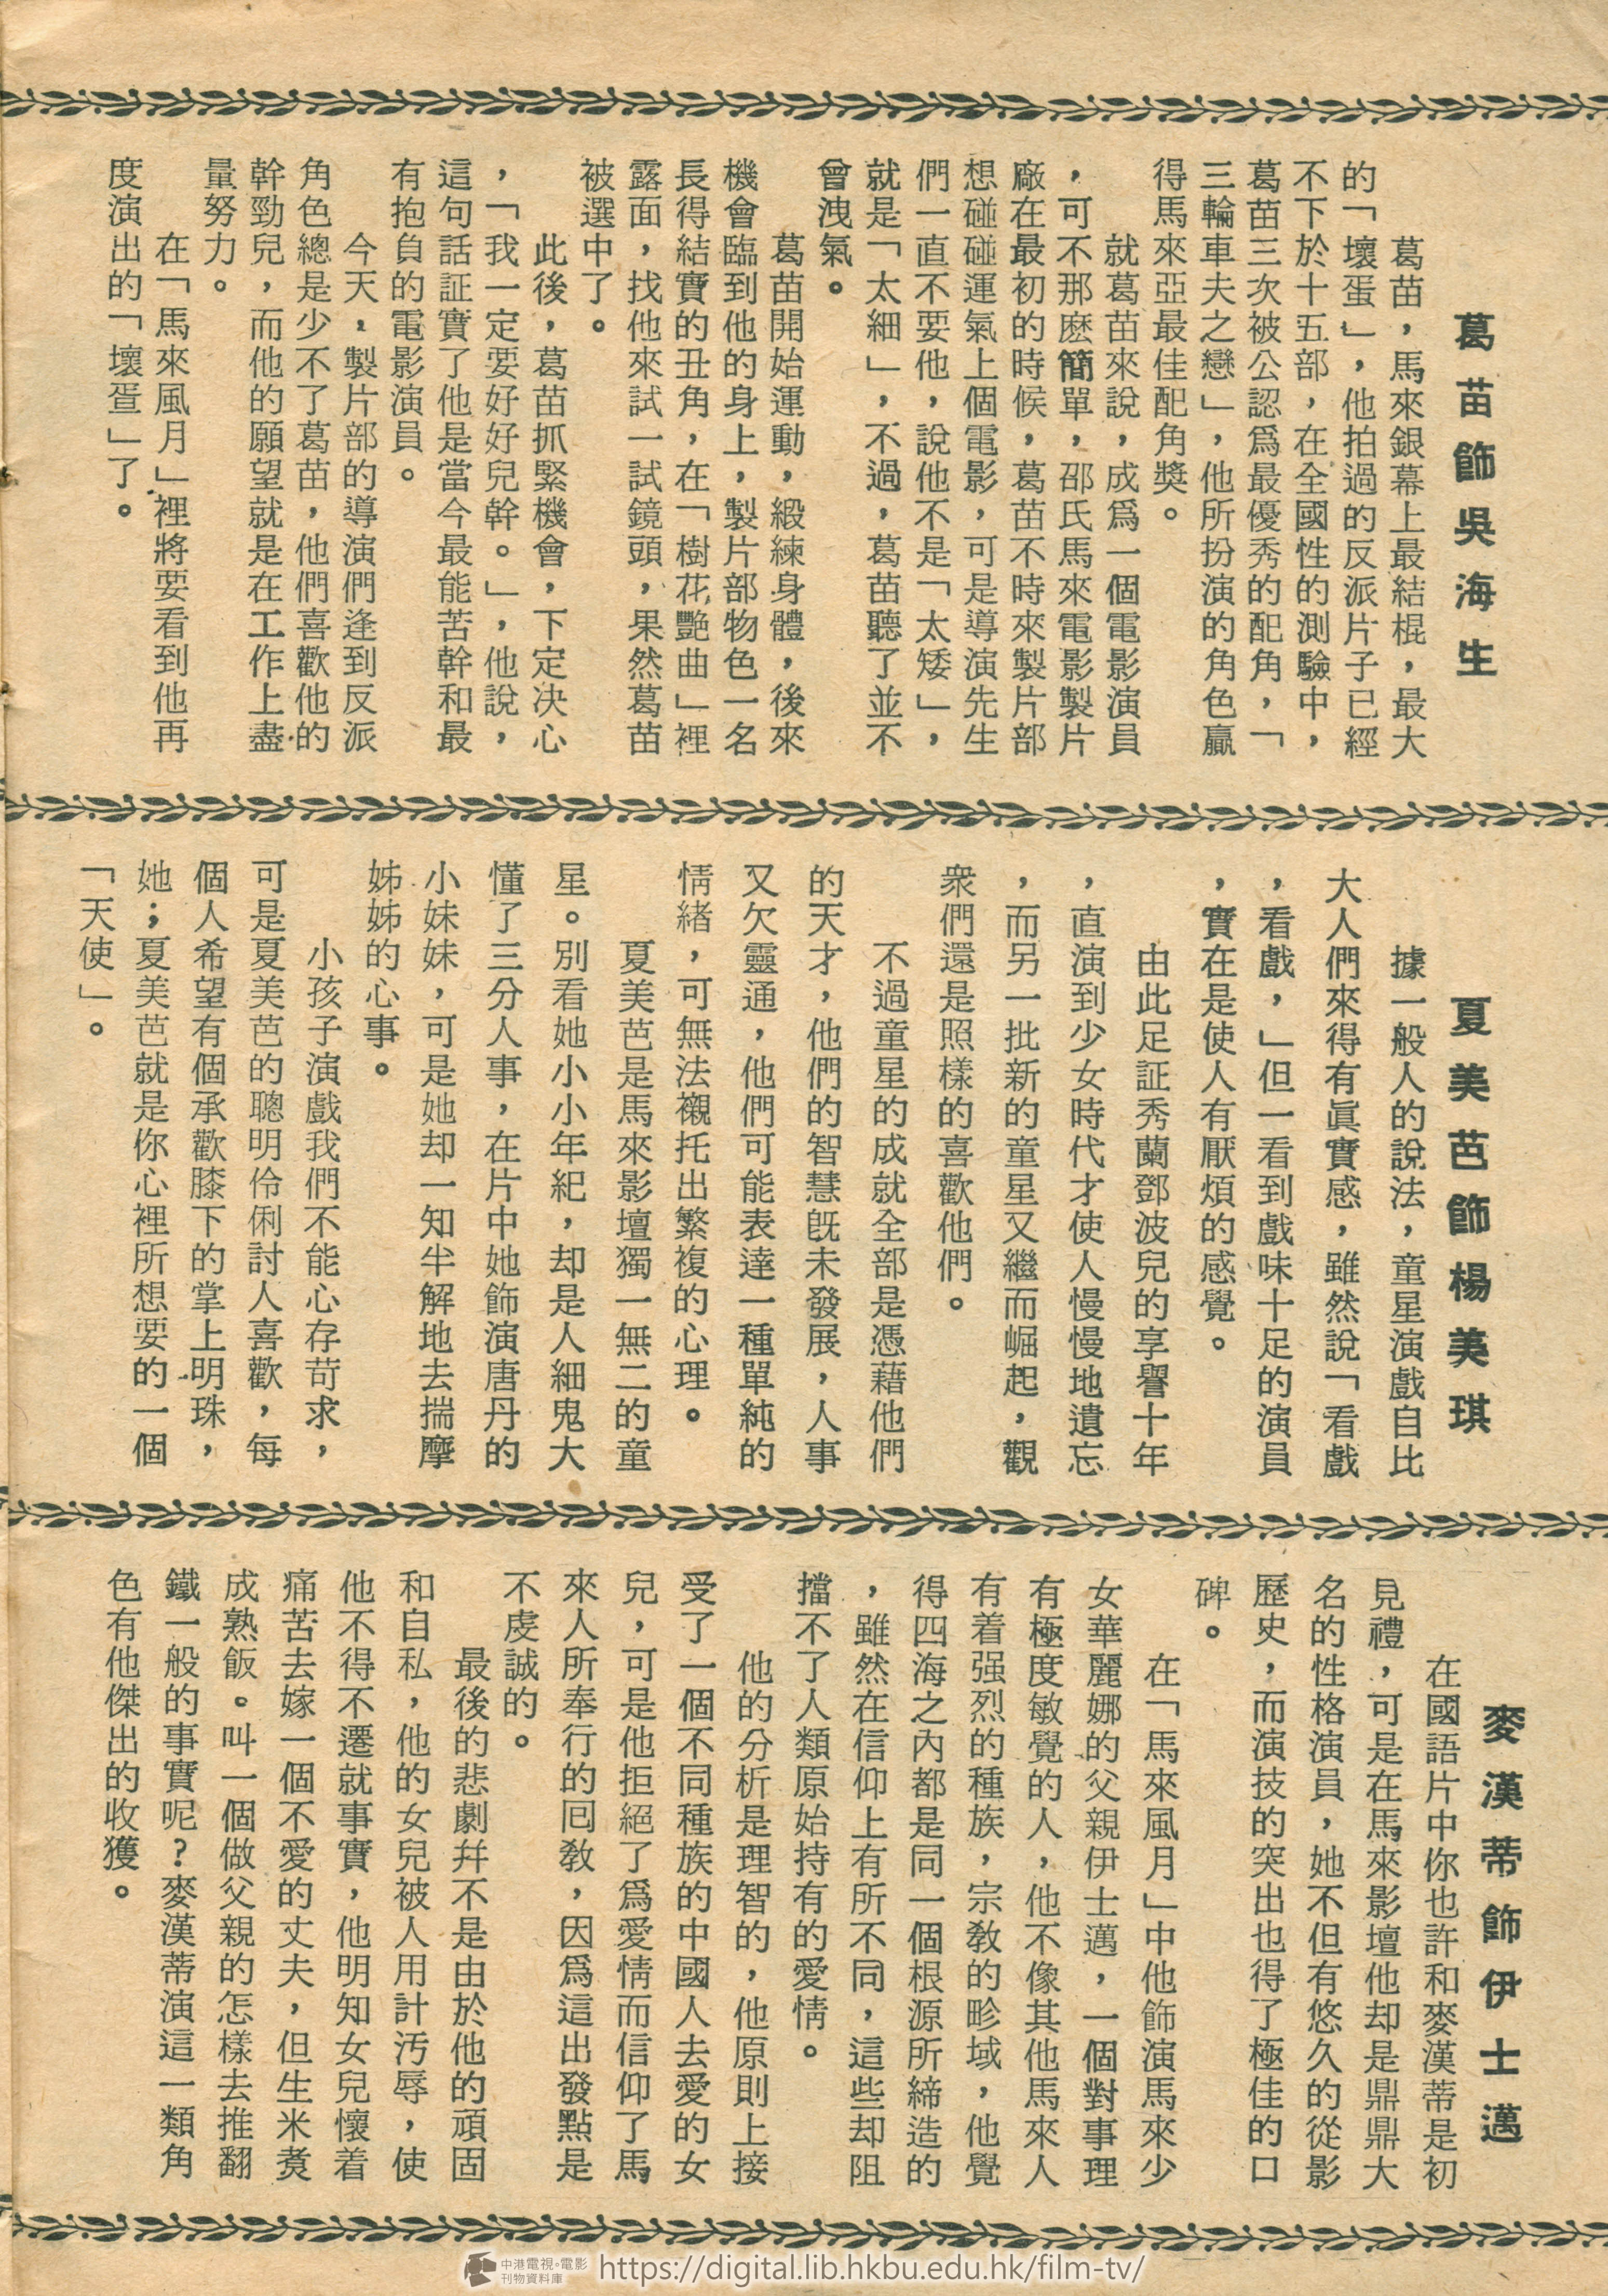 葛苗飾吳海生
葛苗，馬來銀幕上最結棍，最大
的「壞蛋」，他拍過的反派片子已經
不下於十五部，在全國性的測驗中，
葛苗三次被公認爲最優秀的配角，「
三輪車夫之戀」，他所扮演的角色贏
得馬來亞最佳配角獎。
就葛苗來說，成爲一個電影演員
，可不那麽簡單，邵氏馬來電影製片
廠在最初的時候，葛苗不時來製片部
想碰碰運氣上個電影，可是導演先生
們一直不要他，說他不是「太矮」，
就是「太細」，不過，葛苗聽了並不
曾洩氣。
葛苗開始運動，緞練身體，後來
機會臨到他的身上，製片部物色一名
長得結實的丑角，在「樹花艷曲」裡
露面，找他來試一試鏡頭，果然葛苗
被選中了。
此後，葛苗抓緊機會，下定决心
，「我一定要好好兒幹。」，他說，
這句話証實了他是當今最能苦幹和最
有抱負的電影演員。
今天，製片部的導演們逢到反派
角色總是少不了葛苗，他們喜歡他的
幹勁兒，而他的願望就是在工作上盡
量努力。
在「馬來風月」裡將要看到他再
度演出的「壞蛋」了。
夏美芭飾楊美琪
據一般人的說法，童星演戲自比
大人們來得有眞實感，雖然說「看戲
，看戲，」但一看到戲味十足的演員
，實在是使人有厭煩的感覺。
由此足証秀蘭鄧波兒的享譽十年
，直演到少女時代才使人慢慢地遺忘
，而另一批新的童星又繼而崛起，觀
衆們還是照樣的喜歡他們。
不過童星的成就全部是憑藉他們
的天才，他們的智慧旣未發展，人事
又欠靈通，他們可能表達一種單純的
情緒，可無法襯托出繁複的心理。
夏美芭是馬來影壇獨一無二的童
星。別看她小小年紀，却是人細鬼大
懂了三分人事，在片中她飾演唐丹的
小妹妹，可是她却一知半解地去揣摩
姊姊的心事。
小孩子演戲我們不能心存苛求，
可是夏美芭的聰明伶俐討人喜歡，每
個人希望有個承歡膝下的掌上明珠，
她；夏美芭就是你心裡所想要的一個
「天使」。
麥漢蒂飾伊士邁
在國語片中你也許和麥漢蒂是初
見禮，可是在馬來影壇他却是鼎鼎大
名的性格演員，她不但有悠久的從影
歷史，而演技的突出也得了極佳的口
碑。
在「馬來風月」中他飾演馬來少
女華麗娜的父親伊士邁，一個對事理
有極度敏覺的人，他不像其他馬來人
有着强烈的種族，宗敎的畛域，他覺
得四海之內都是同一個根源所締造的
，雖然在信仰上有所不同，這些却阻
擋不了人類原始持有的愛情。
他的分析是理智的，他原則上接
受了一個不同種族的中國人去愛的女
兒，可是他拒絕了爲愛情而信仰了馬
來人所奉行的囘敎，因爲這出發點是
不虔誠的。
最後的悲劇幷不是由於他的頑固
和自私，他的女兒被人用計汚辱，使
他不得不遷就事實，他明知女兒懷着
痛苦去嫁一個不愛的丈夫，但生米煑
成熟飯。叫一個做父親的怎樣去推翻
鐵一般的事實呢？麥漢蒂演這一類角
色有他傑出的收獲。
中港電視·電影
刊物資料庫
https://digital.lib.hkbu.edu.hk/film-tv/